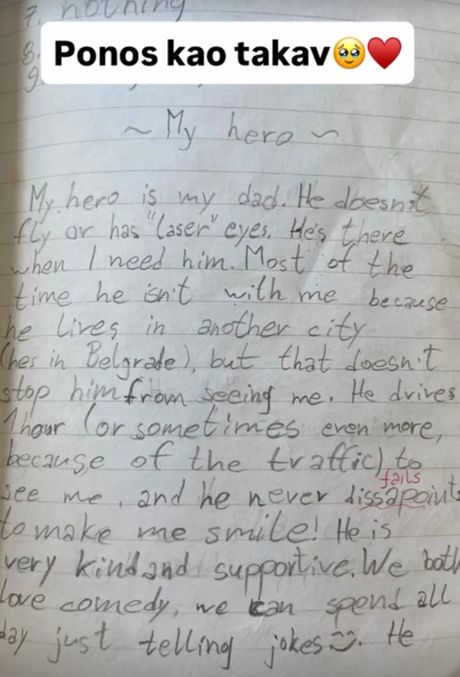 7. nothing
8.
9.
Ponos kao takav🥹❤️
~ My hero ~
My hero is my dad. He doesn't
fly or has "laser" eyes. He's there
when I need him. Most of the
time he isn't with me because
he lives in another city
(hes in Belgrade), but that doesn't
stop him from seeing me. He drives
1 hour (or sometimes even more,
because of the traffic) to
fails
see me, and he never dissapoints
to make me smile! He is
very kind and supportive. We both
love comedy, we can spend all
day just telling jokes☺. He